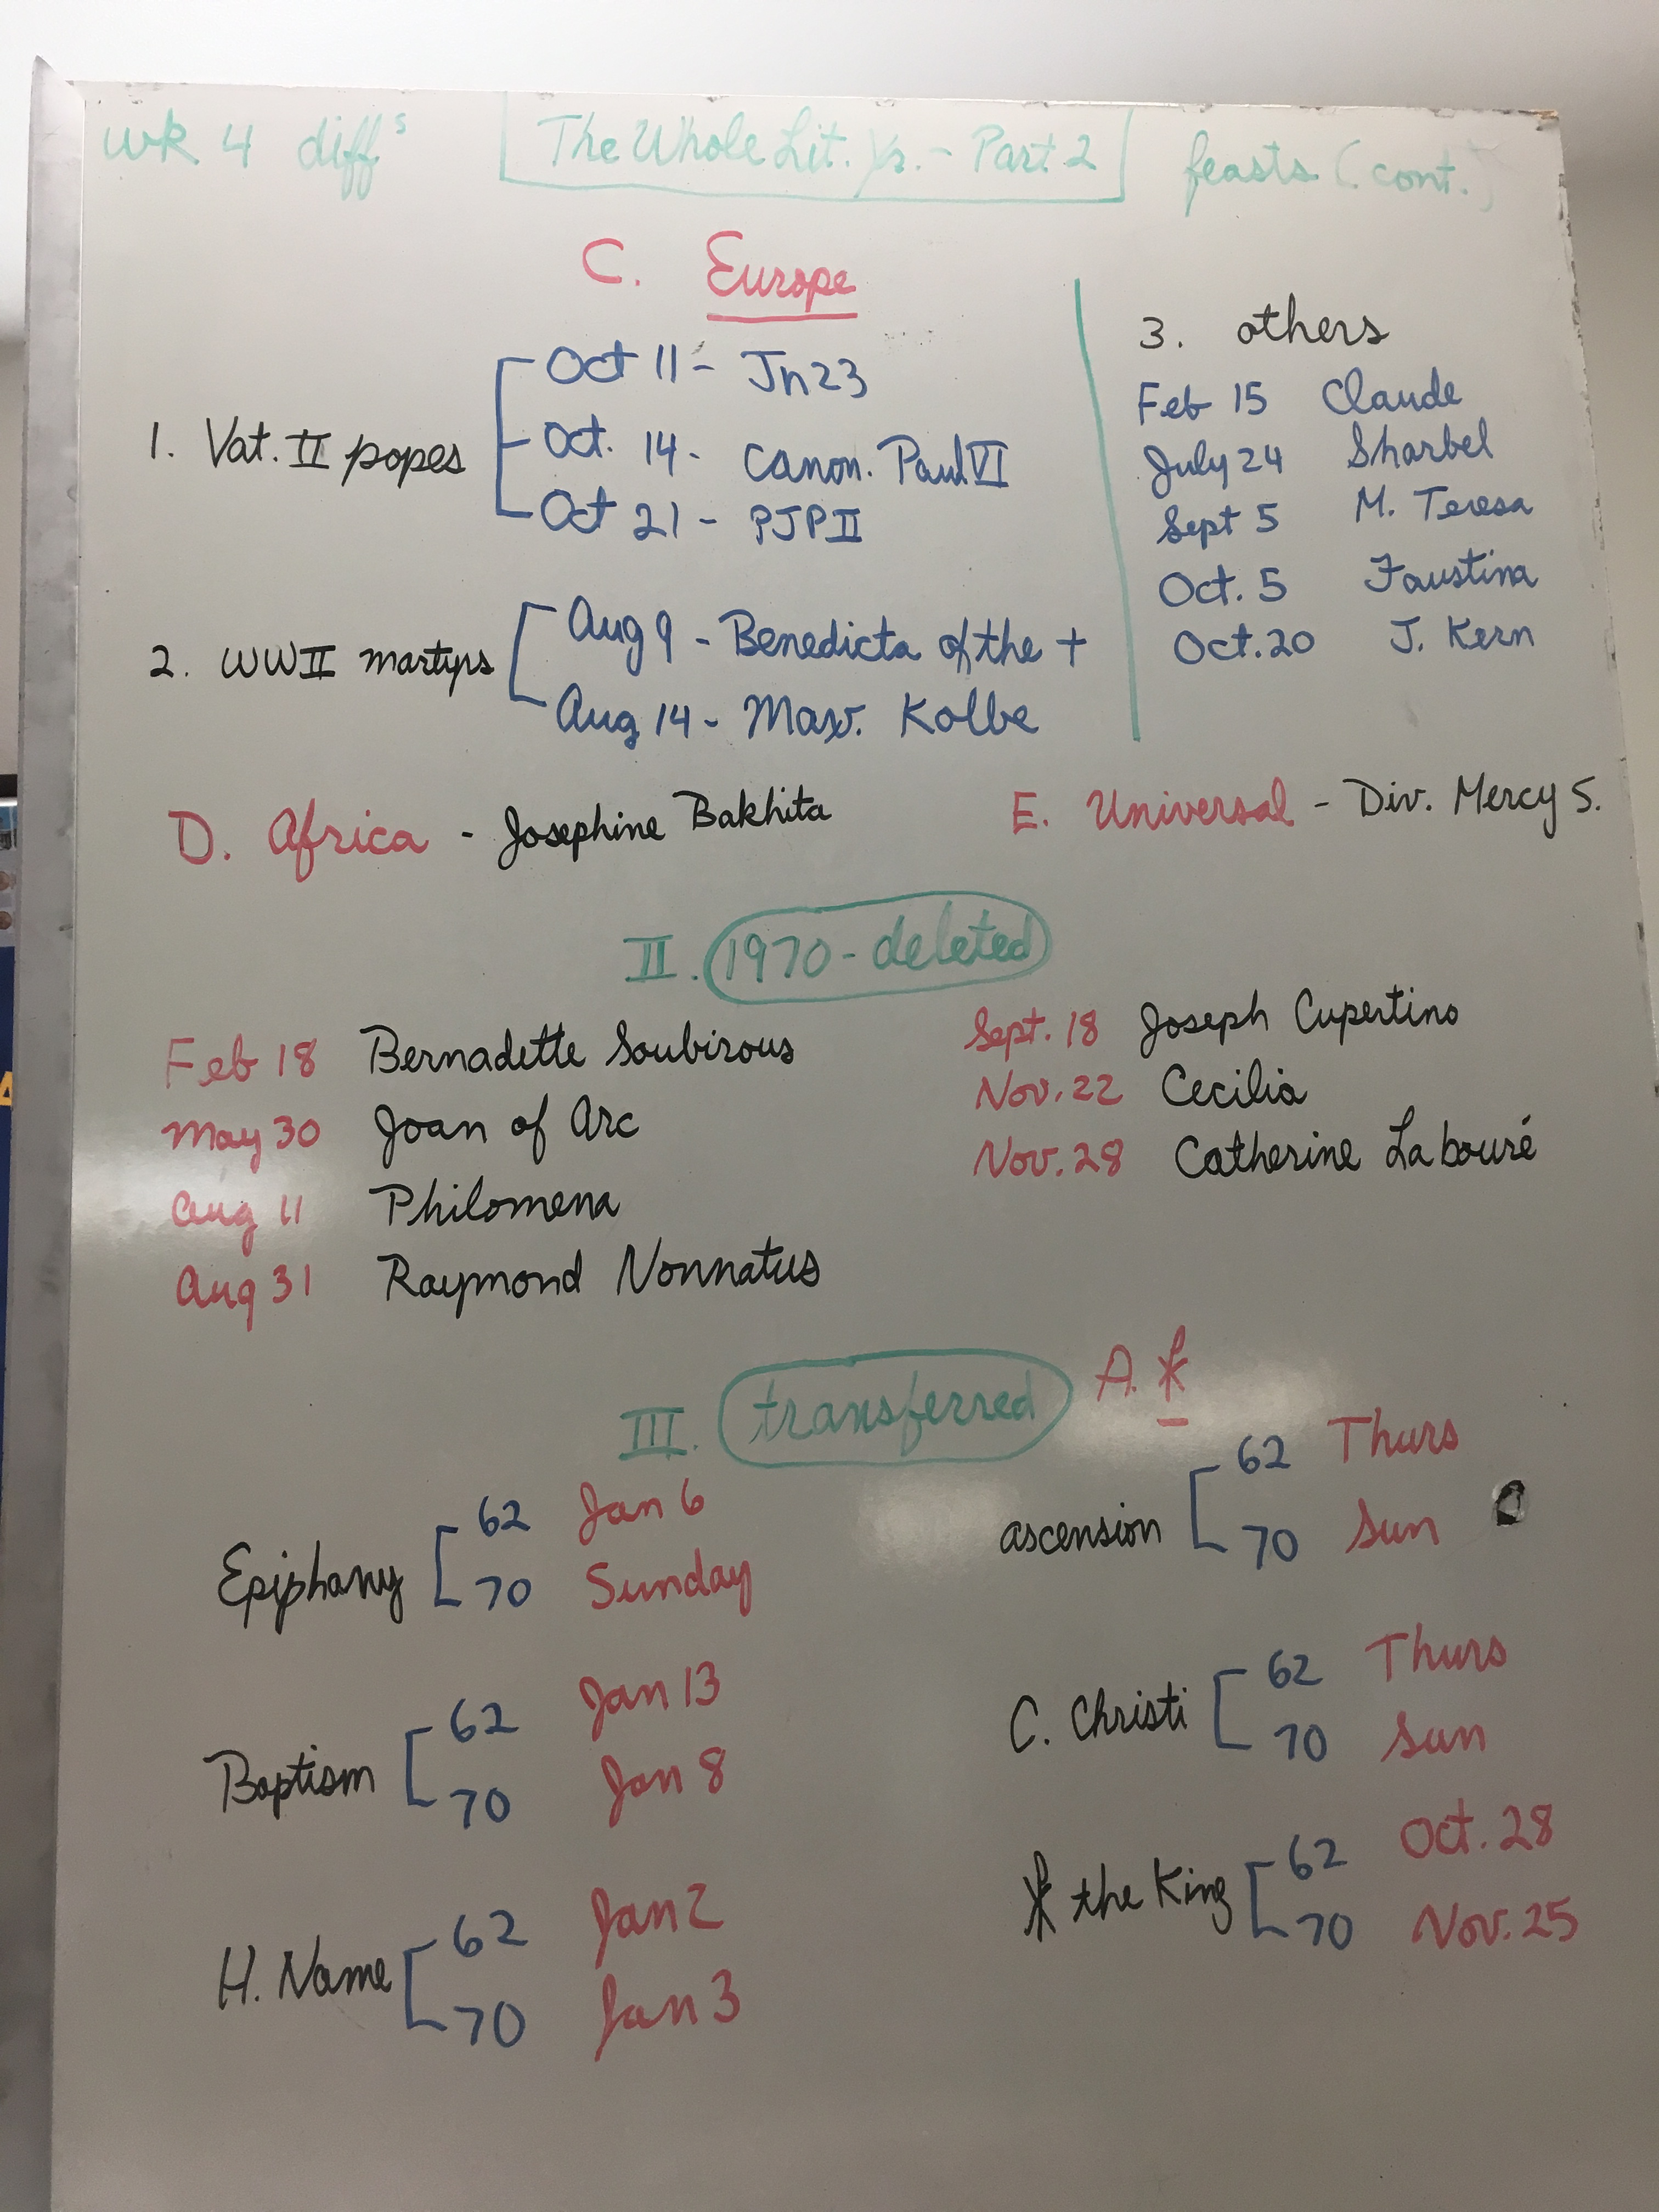 wk 4 diffs The Whole Lit. Yr. - Part 2 feasts (cont.)
C. Europe
1. Vat. II popes
Oct 11 - Jn23
Oct. 14 - Canon. Paul VI
Oct 21 - PJPII
2. WWII martyrs
Aug 9 - Benedicta of the +
Aug 14 - Max. Kolbe
3. others
Feb 15 Claude
July 24 Sharbel
Sept 5 M. Teresa
Oct. 5 Faustina
Oct. 20 J. Kern
D. Africa - Josephine Bakhita
E. Universal - Div. Mercy S.
II. 1970 - deleted
Feb 18 Bernadette Soubirous
May 30 Joan of Arc
Aug 11 Philomena
Aug 31 Raymond Nonnatus
Sept. 18 Joseph Cupertino
Nov. 22 Cecilia
Nov. 28 Catherine Labouré
III. transferred A. ☧
Epiphany
62 Jan 6
70 Sunday
Baptism
62 Jan 13
70 Jan 8
H. Name
62 Jan 2
70 Jan 3
ascension
62 Thurs
70 Sun
C. Christi
62 Thurs
70 Sun
☧ the King
62 Oct. 28
70 Nov. 25